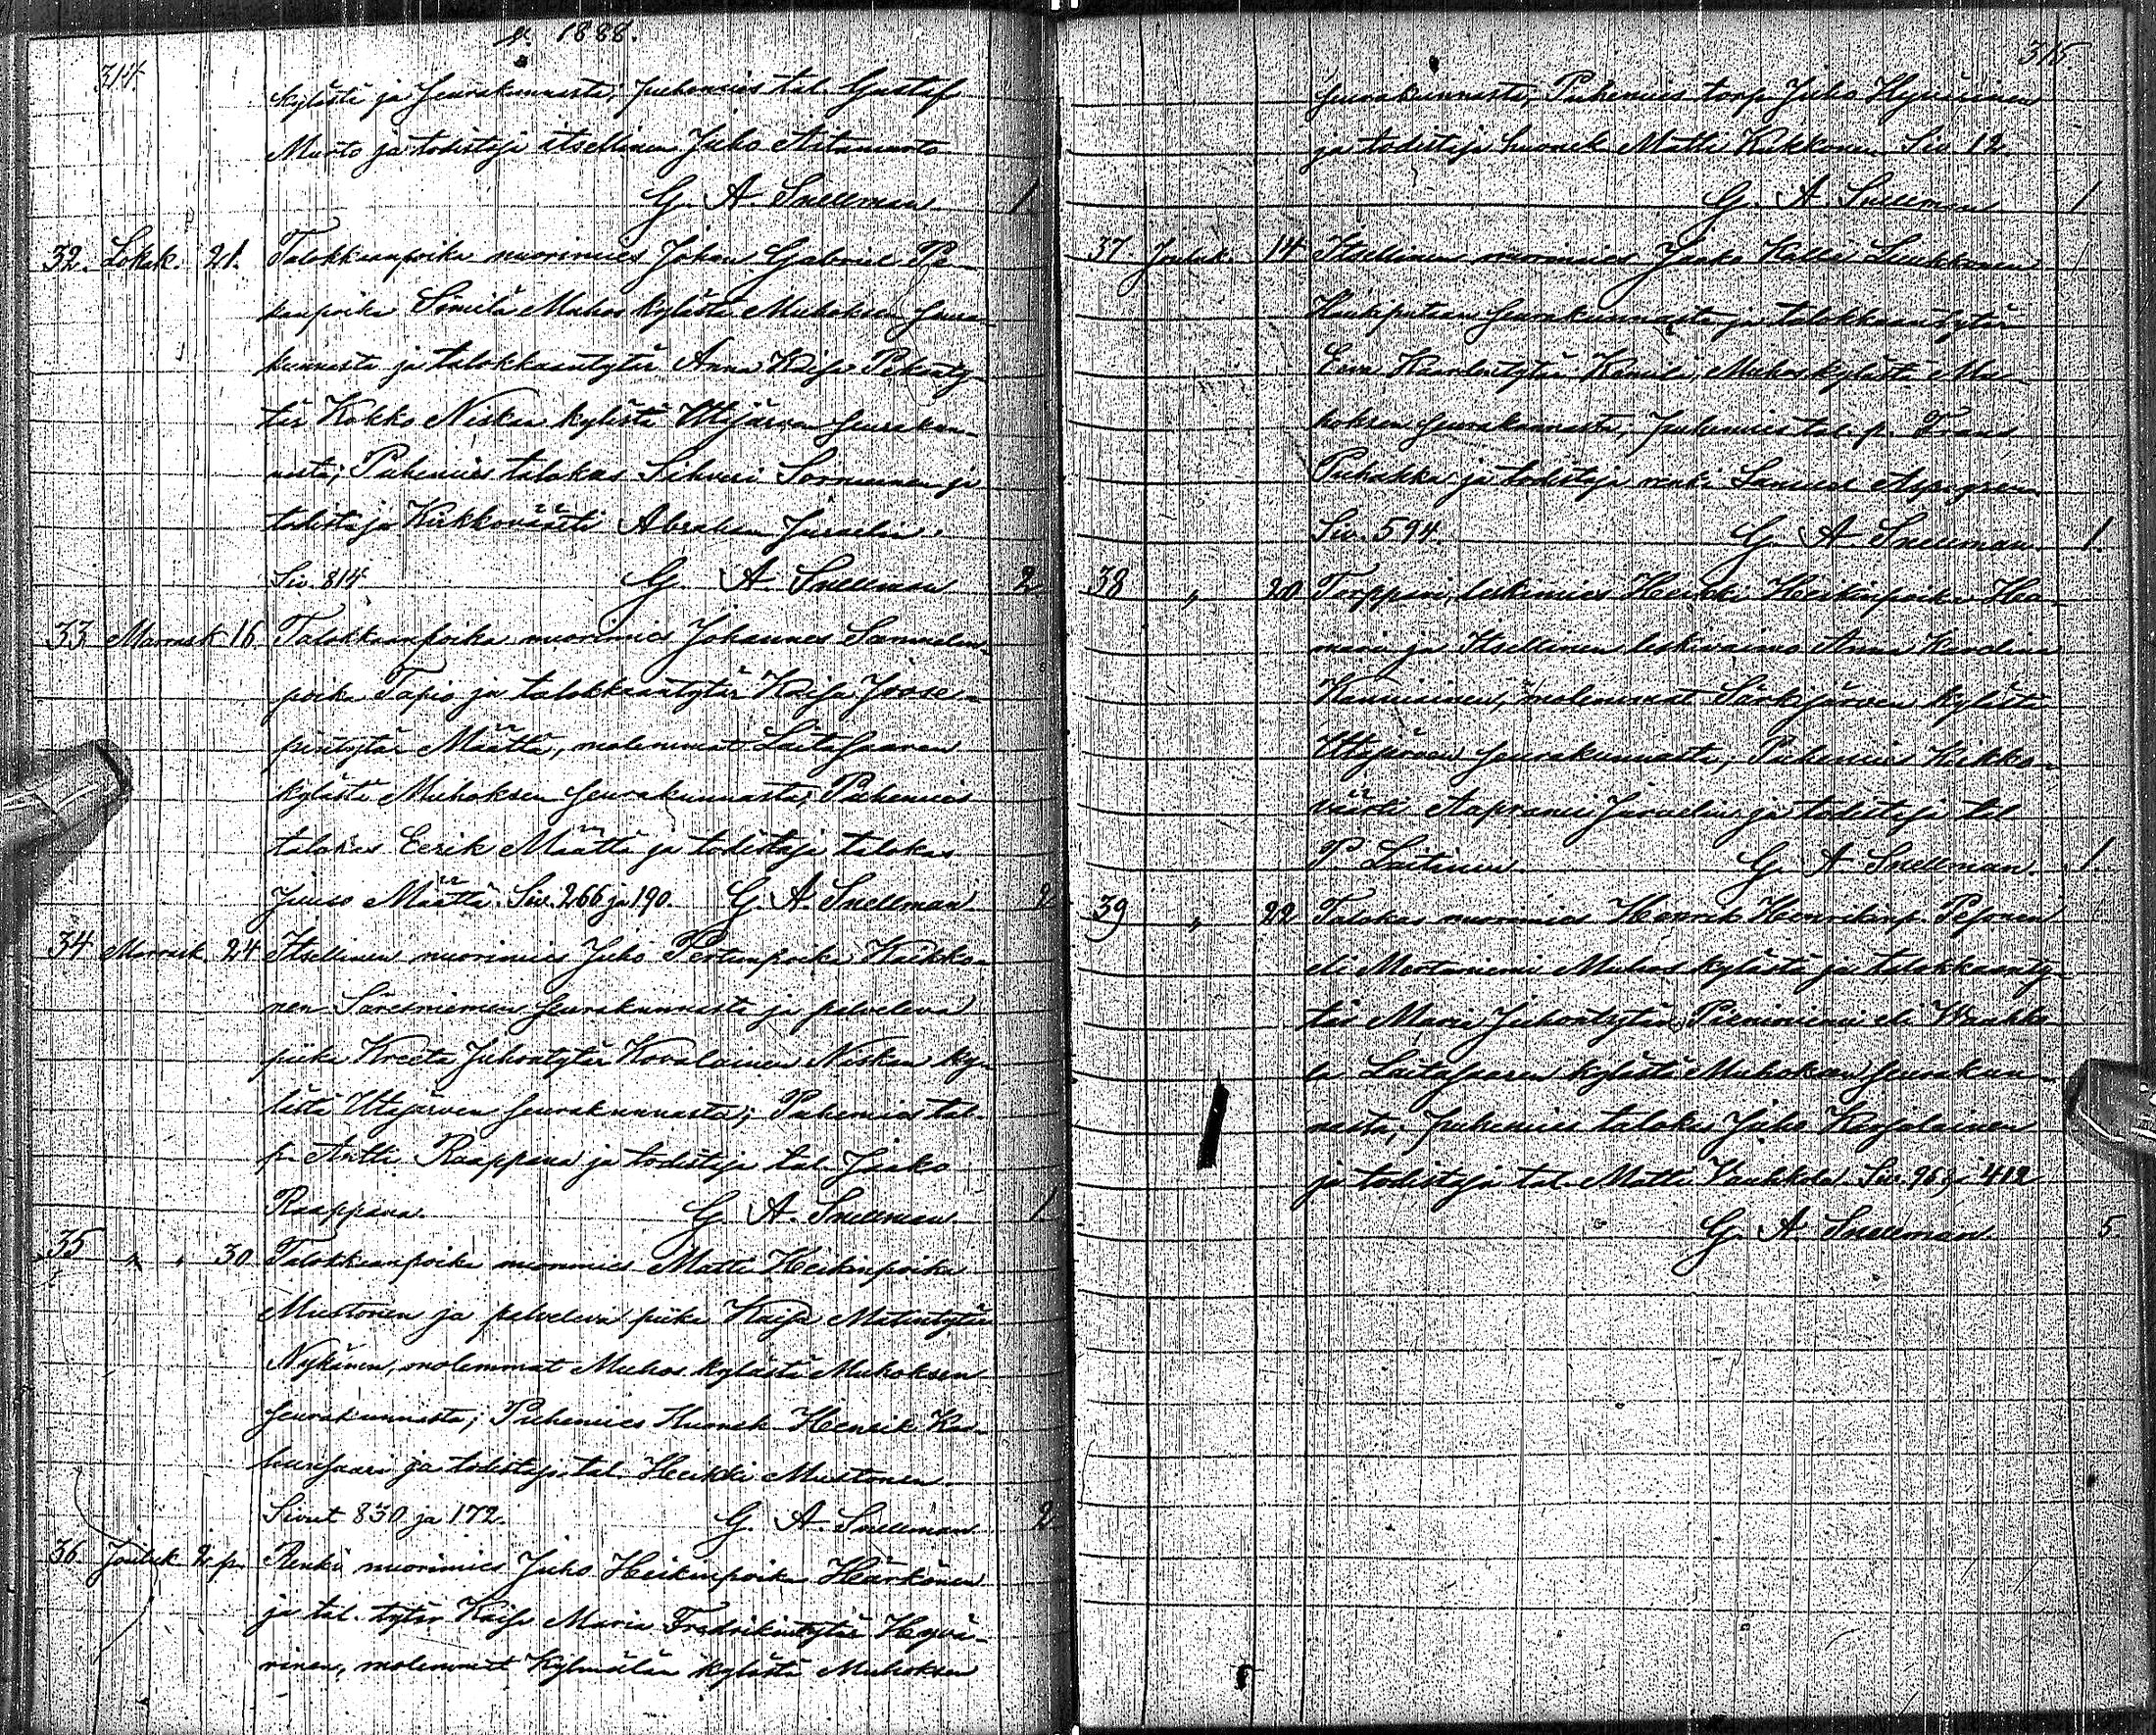 v. 1888.
314
kylästä ja Seurakunnasta; Puhemies tal. Gustaf
Murto ja todistaja itsellinen Juho Aitamurto
G. A. Snellman 1
32. Lokak. 21. Talokkaanpoika nuorimies Johan Gabriel Pe-
kanpoika Similä Muhos kylästä Muhoksen Seura-
kunnasta ja talokkaantytär Anna Kaisa Pekanty-
tär Kokko Niskan kylästä Utajärven Seurakun-
nasta; Puhemies talokas Sihveri Sormunen ja
todistaja Kirkkoväärti Abraham Juvelin.
Siv. 814 G. A. Snellman 2
33 Marrask 16. Talokkaanpoika nuorimies Johannes Samuelin-
poika Tapio ja talokkaantytär Kaisa Joose-
pintytär Määttä, molemmat Laitasaaren
kylästä Muhoksen Seurakunnasta; Puhemies
talokas Eerik Määttä ja todistaja talokas
Juuso Määttä. Siv. 266 ja 190. G. A. Snellman 2
34 Marrask. 24 Itsellinen nuorimies Juho Pertunpoika Kaikko-
nen Säresniemen Seurakunnasta ja palveleva
piika Kreeta Juhontytär Kovalainen Niskan ky-
lästä Utajärven Seurakunnasta; Puhemies tal.
p. Antti Raappana ja todistaja tal. Jaako
Raappana. G. A. Snellman 1
35 " " 30 Talokkaanpoika nuorimies Matti Heikinpoika
Mustonen ja palveleva piika Kaisa Matintytär
Nykänen, molemmat Muhos kylästä Muhoksen
Seurakunnasta; Puhemies Huonek Henrik
ja todistaja tal. Heikki Mustonen.
Sivut 830 ja 172. G. A. Snellman 2
36 Jouluk 2 p. Renki nuorimies Juho Heikinpoika Härkönen
ja tal. tytär Kaisa Maria Fredrikintytär Hyvä-
rinen, molemmat Kylmälän kylästä Muhoksen
315
Seurakunnasta, Puhemies torp. Juho Hyvärinen
ja todistaja huonek Matti Kukkonen Siv. 12.
G. A. Snellman 1
37. Jouluk. 14 Itsellinen nuorimies Jaako Kallei Leukkunen
Haukiputaan Seurakunnasta ja talokkaantytär
Eeva Kaarlentytär Muhos kylästä Mu-
hoksen Seurakunnasta; Puhemies tal. p. Frans
Puhakka ja todistaja renki Samuel Aspegren.
Siv. 594. G. A. Snellman. 1.
38 " 20 Torppari, leskimies Heikki Heikinpoika Ha-
ja Itsellinen leskivaimo Anna Karolina
molemmat Särkijärven kylästä
Utajärven Seurakunnasta; Puhemies Kirkko-
väärti Aaprami Juvelius ja todistaja tal
P. Laitinen. G. A. Snellman. 1.
39 " 22 Talokas nuorimies Henrik Henrikinp. Pesonen
eli Montaniemi Muhos kylästä ja talokkaanty-
tär Maria Juhontytär Pieniniemi eli Vaakko-
la Laitasaaren kylästä Muhoksen Seurakun-
nasta; Puhemies talokas Juho Karjalainen
ja todistaja tal. Matti Vaakkola. Siv. 268 ja 412
G. A. Snellman. 5